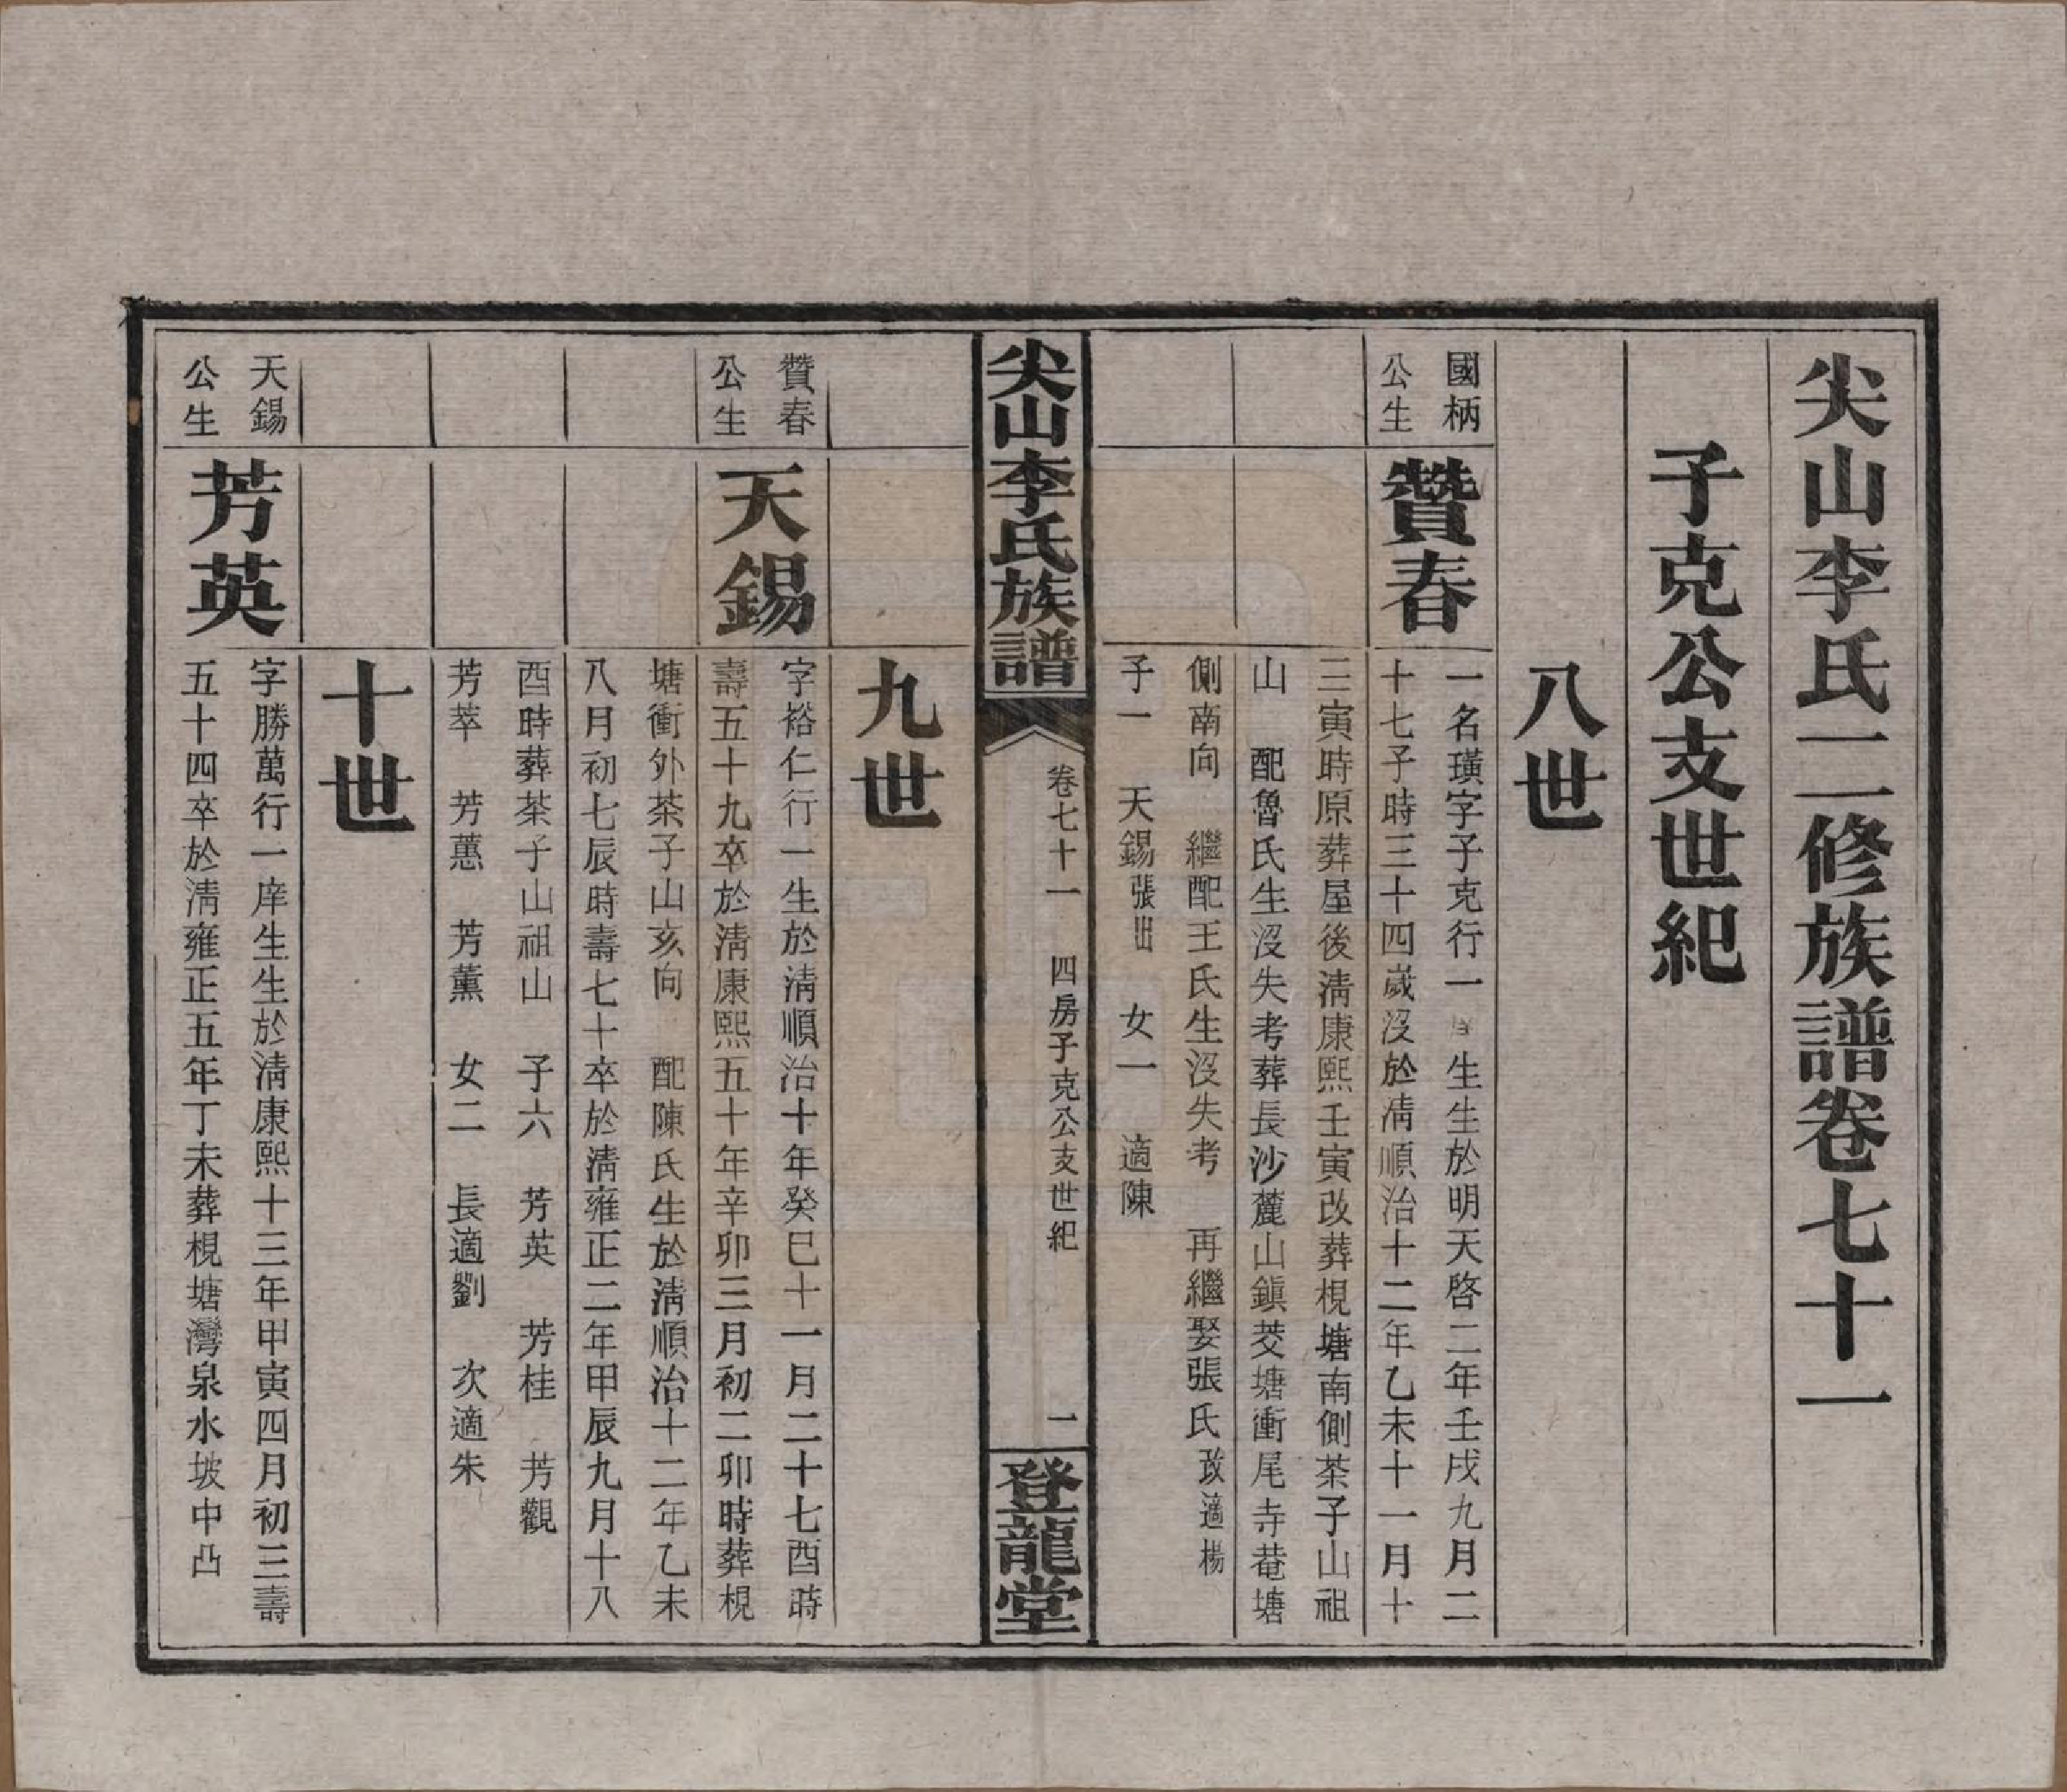 尖山李氏二修族譜卷七十一
子克公支世紀
八世
國柄公生
贊春
一名璜字子克行一 生生於明天啓二年壬戌九月二
十七子時三十四歲沒於淸順治十二年乙未十一月十
三寅時原葬屋後淸康熙壬寅改葬梘塘南側茶子山祖
山 配魯氏生沒失考葬長沙麓山鎭茭塘衝尾寺菴塘
側南向 繼配王氏生沒失考 再繼娶張氏改適楊
子一 天錫張出 女一 適陳
尖山李氏族譜
卷七十一 四房子克公支世紀
一
登龍堂
九世
贊春公生
天錫
字裕仁行一生於淸順治十年癸巳十一月二十七酉時
壽五十九卒於淸康熙五十年辛卯三月初二卯時葬梘
塘衝外茶子山亥向 配陳氏生於淸順治十二年乙未
八月初七辰時壽七十卒於淸雍正二年甲辰九月十八
酉時葬茶子山祖山 子六 芳英 芳桂 芳觀
芳萃 芳蕙 芳薰 女二 長適劉 次適朱
十世
天錫公生
芳英
字勝萬行一庠生生於淸康熙十三年甲寅四月初三壽
五十四卒於淸雍正五年丁未葬梘塘灣泉水坡中凸